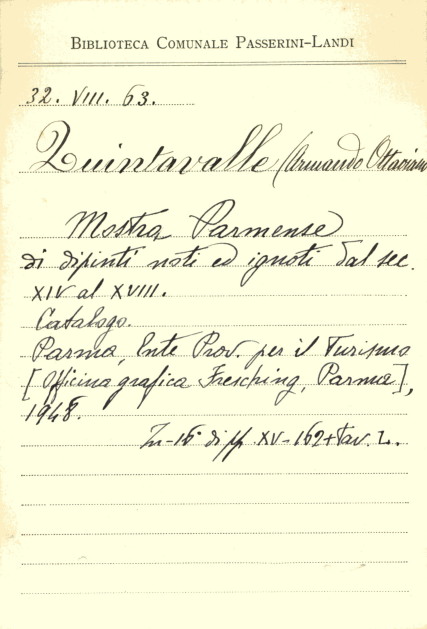 BIBLIOTECA COMUNALE PASSERINI-LANDI
32. VIII. 63.
Quintavalle (Armando Ottaviano
Mostra Parmense
di dipinti noti ed ignoti dal sec.
XIV al XVIII.
Catalogo.
Parma, Ente Prov. per il Turismo
[Officina grafica Fresching, Parma],
1948.
In-16° di pp. XV-162+tav. L.